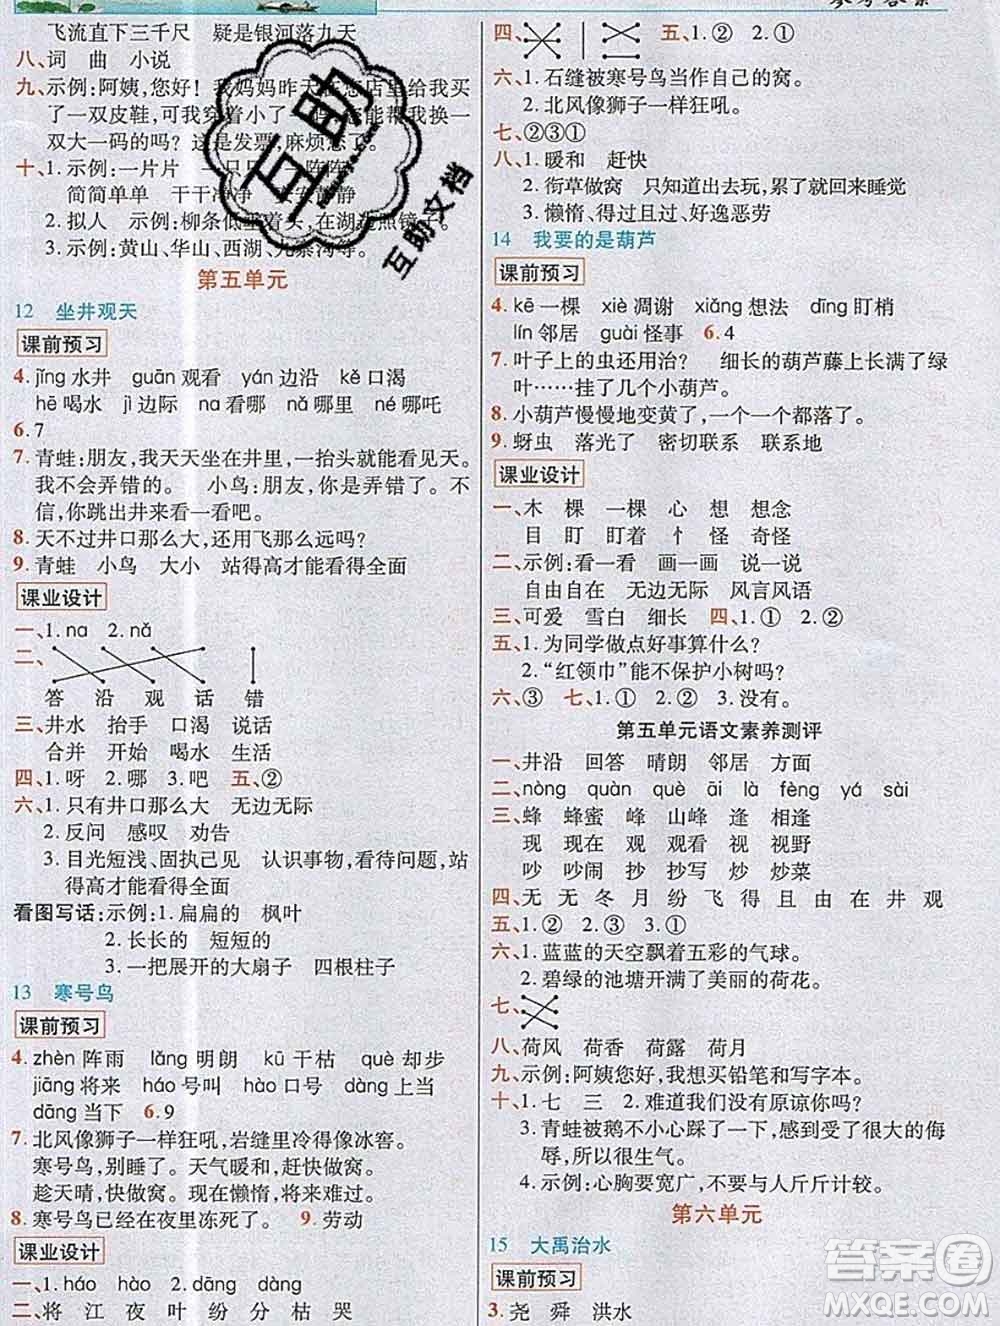 参考答案
飞流直下三千尺 疑是银河落九天
八、词 曲 小说
九、示例:阿姨,您好! 我妈妈昨天在您店里买了
一双皮鞋,可我穿着小了 能帮我换一
双大一码的吗? 这是发票,麻烦您了。
十、1. 示例:一片片 一只只 一阵阵
简简单单 干干净净 安安静静
2. 拟人 示例:柳条低垂着头,在湖边照镜
3. 示例:黄山、华山、西湖、九寨沟等。
第五单元
12 坐井观天
课前预习
4. jǐng 水井 guān 观看 yán 边沿 kě 口渴
hē 喝水 jì 边际 na 看哪 nǎ 哪里 né 哪吒
6. 7
7. 青蛙:朋友,我天天坐在井里,一抬头就能看见天。
我不会弄错的。 小鸟:朋友,你是弄错了。不
信,你跳出井来看一看吧。
8. 天不过井口那么大,还用飞那么远吗?
9. 青蛙 小鸟 大小 站得高才能看得全面
课业设计
一、1. na 2. nǎ
二、
答 沿 观 话 错
三、井水 抬手 口渴 说话
合并 开始 喝水 生活
四、1. 呀 2. 哪 3. 吧 五、②
六、1. 只有井口那么大 无边无际
2. 反问 感叹 劝告
3. 目光短浅、固执己见 认识事物,看待问题,站
得高才能看得全面
看图写话:示例:1. 扁扁的 枫叶
2. 长长的 短短的
3. 一把展开的大扇子 四根柱子
13 寒号鸟
课前预习
4. zhèn 阵雨 lǎng 明朗 kū 干枯 què 却步
jiāng 将来 háo 号叫 hào 口号 dàng 上当
dāng 当下 6. 9
7. 北风像狮子一样狂吼,岩缝里冷得像冰窖。
寒号鸟,别睡了。天气暖和,赶快做窝。
趁天晴,快做窝。现在懒惰,将来难过。
8. 寒号鸟已经在夜里冻死了。 9. 劳动
课业设计
一、1. háo hào 2. dāng dàng
二、将 江 夜 叶 纷 分 枯 哭
四、 五、1. ② 2. ①
六、1. 石缝被寒号鸟当作自己的窝。
2. 北风像狮子一样狂吼。
七、②③①
八、1. 暖和 赶快
2. 衔草做窝 只知道出去玩,累了就回来睡觉
3. 懒惰、得过且过、好逸恶劳
14 我要的是葫芦
课前预习
4. kē 一棵 xiè 凋谢 xiǎng 想法 dīng 盯梢
lín 邻居 guài 怪事 6. 4
7. 叶子上的虫还用治? 细长的葫芦藤上长满了绿
叶……挂了几个小葫芦。
8. 小葫芦慢慢地变黄了,一个一个都落了。
9. 蚜虫 落光了 密切联系 联系地
课业设计
一、木 棵 一棵 心 想 想念
目 盯 盯着 忄 怪 奇怪
二、示例:看一看 画一画 说一说
自由自在 无边无际 风言风语
三、可爱 雪白 细长 四、1. ① 2. ②
五、1. 为同学做点好事算什么?
2. “红领巾”能不保护小树吗?
六、③ 七、1. ① 2. ② 3. 没有。
第五单元语文素养测评
一、井沿 回答 晴朗 邻居 方面
二、nòng quàn què āi là fèng yá sài
三、蜂 蜂蜜 峰 山峰 逢 相逢
现 现在 观 观看 视 视野
吵 吵闹 抄 抄写 炒 炒菜
四、无 无 冬 月 纷 飞 得 且 由 在 井 观
五、1. ① 2. ②
六、1. 蓝蓝的天空飘着五彩的气球。
2. 碧绿的池塘开满了美丽的荷花。
七、
八、荷风 荷香 荷露 荷月
九、示例:阿姨您好,我想买铅笔和写字本。
十、1. 七 三 2. 难道我们没有原谅你吗?
3. 青蛙被鹅不小心踩了一下,感到受了很大的侮
辱,所以很生气。
4. 示例:心胸要宽广,不要与人斤斤计较。
第六单元
15 大禹治水
课前预习
3. 尧 舜 洪水
互助
互助文档
答案圈
MXQE.COM